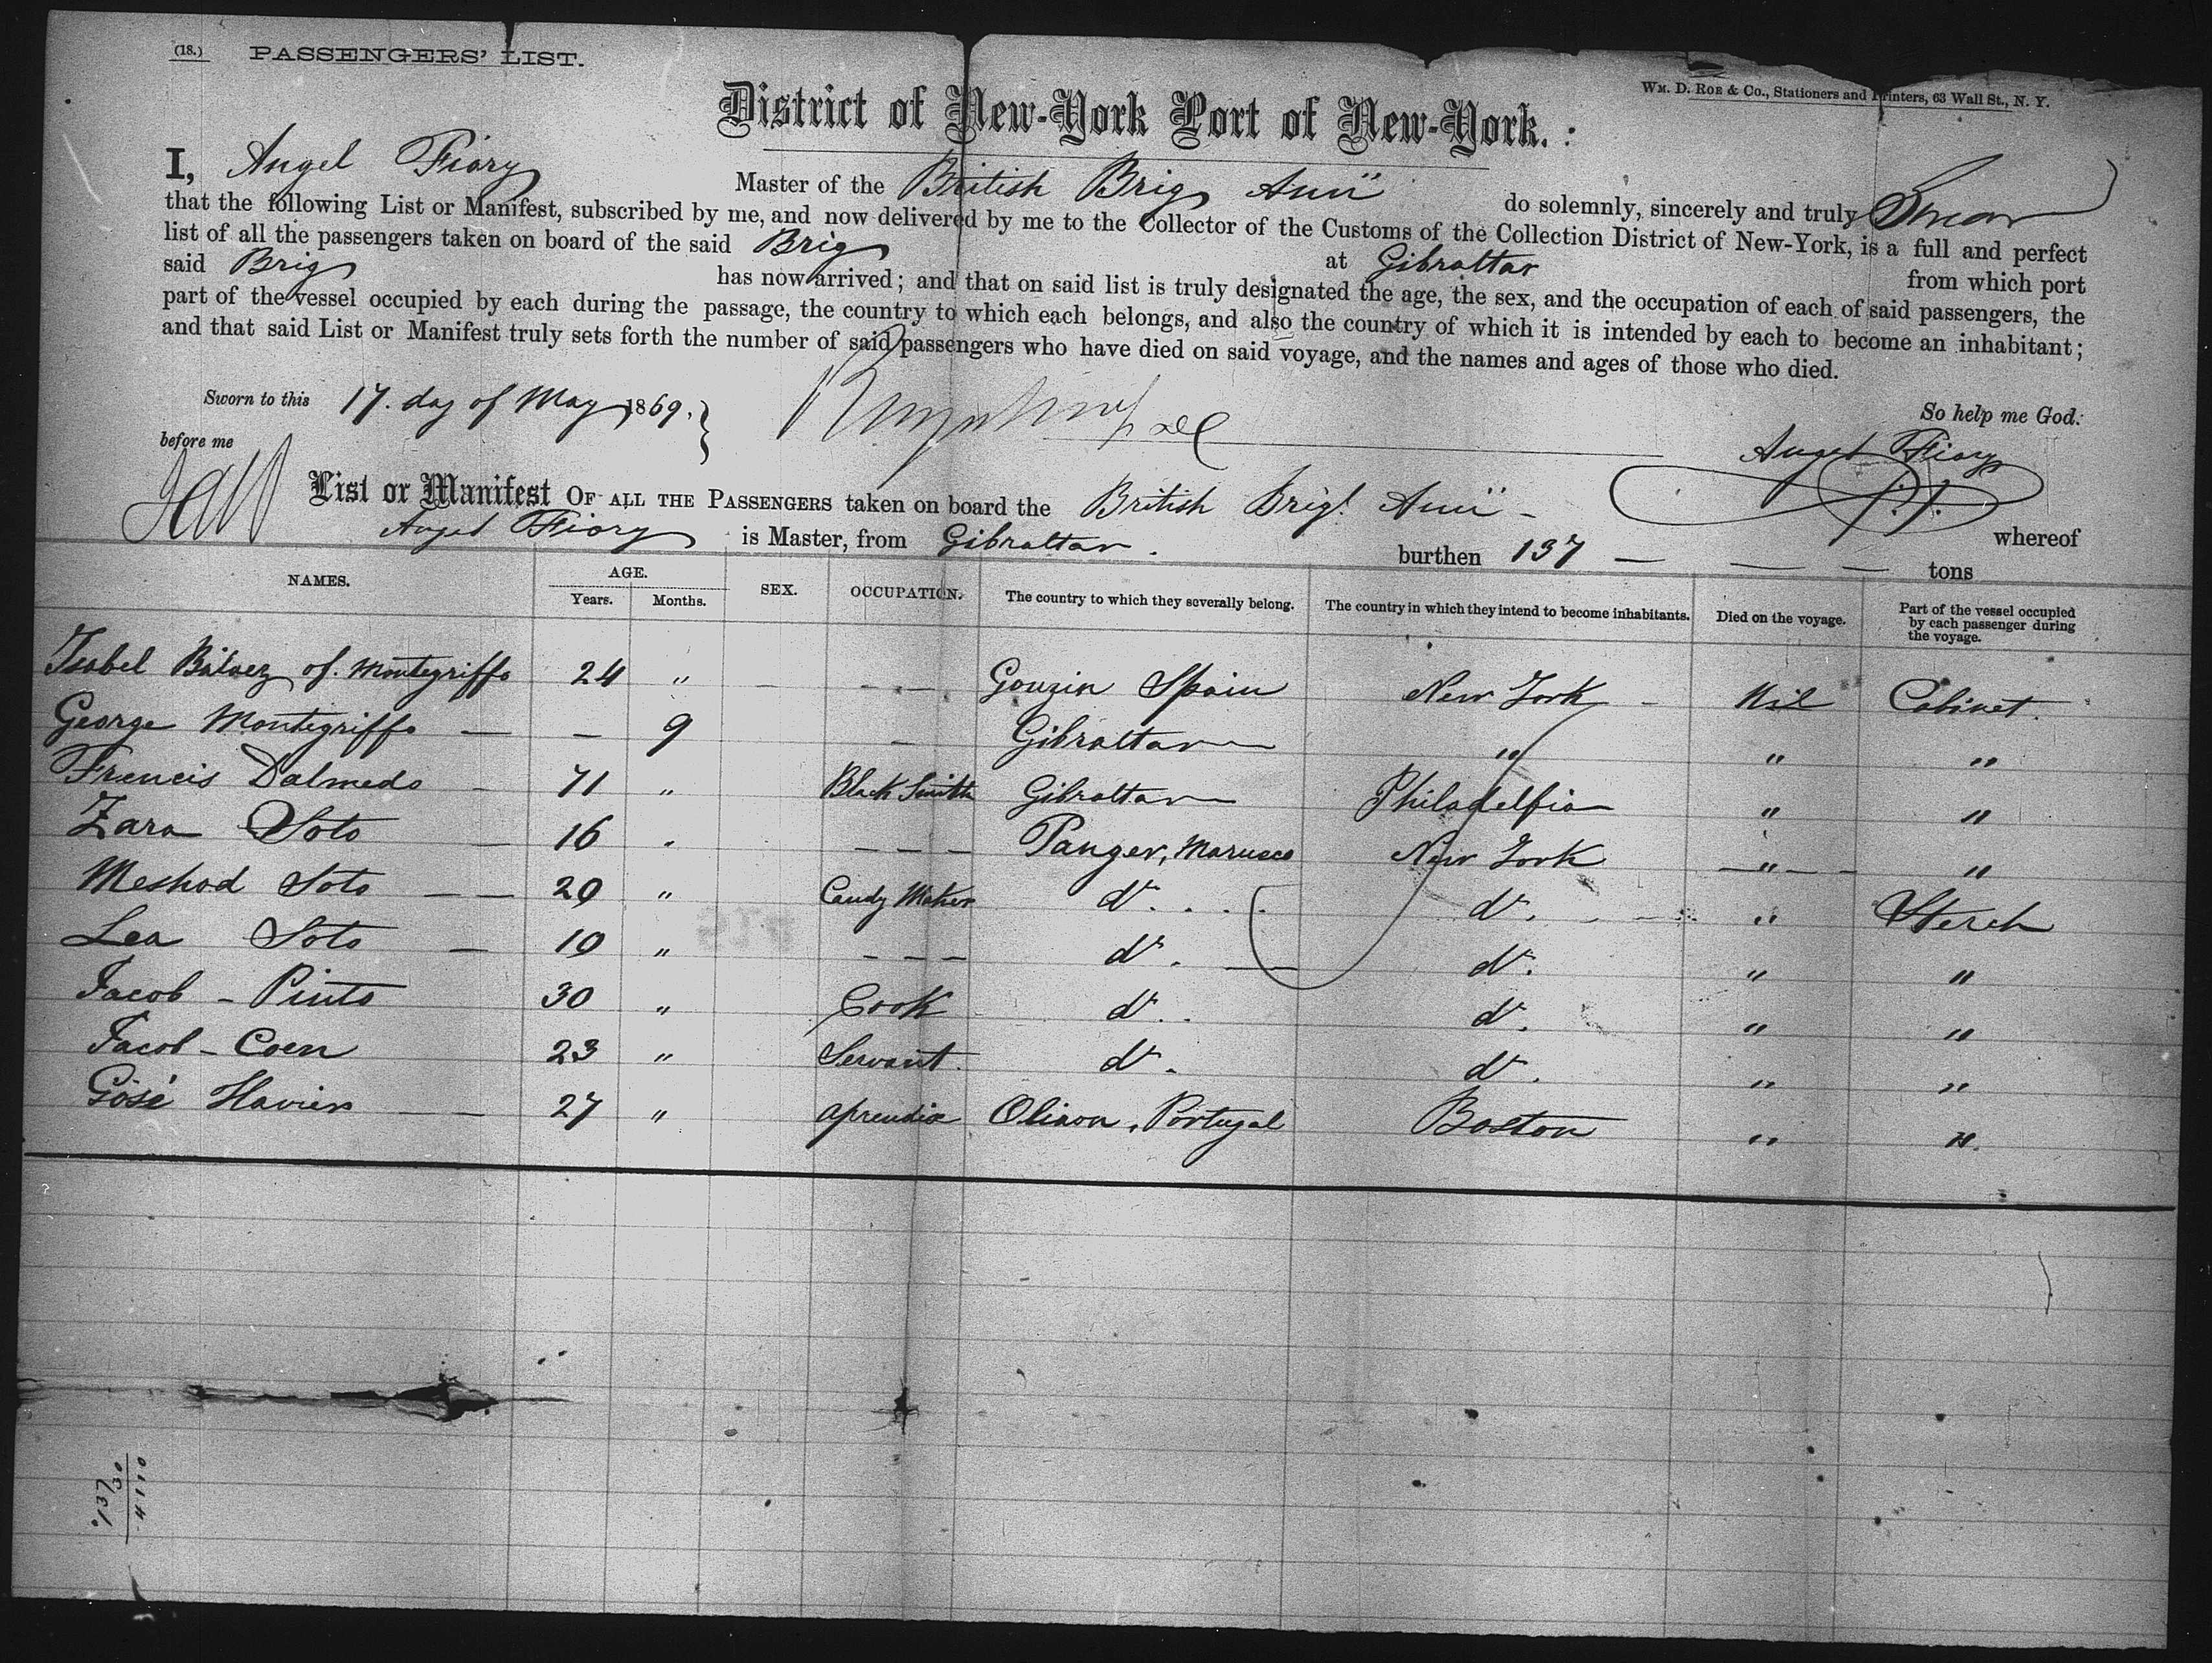 (18.) PASSENGERS' LIST.
WM. D. ROE & Co., Stationers and Printers, 63 Wall St., N. Y.
District of New-York Port of New-York. :
I, Angel Fiory Master of the British Brig Ann do solemnly, sincerely and truly Swear
that the following List or Manifest, subscribed by me, and now delivered by me to the Collector of the Customs of the Collection District of New-York, is a full and perfect
list of all the passengers taken on board of the said Brig at Gibraltar from which port
said Brig has now arrived; and that on said list is truly designated the age, the sex, and the occupation of each of said passengers, the
part of the vessel occupied by each during the passage, the country to which each belongs, and also the country of which it is intended by each to become an inhabitant;
and that said List or Manifest truly sets forth the number of said passengers who have died on said voyage, and the names and ages of those who died.
Sworn to this 17. day of May 1869. So help me God:
before me Angel Fiory
List or Manifest OF ALL THE PASSENGERS taken on board the British Brig. Ann - whereof
Angel Fiory is Master, from Gibraltar. burthen 137 — — — tons
NAMES. AGE. Years. Months. SEX. OCCUPATION. The country to which they severally belong. The country in which they intend to become inhabitants. Died on the voyage. Part of the vessel occupied by each passenger during the voyage.
Isabel of. Montegriffo 24 " - - - - Spain New York - Nil Cabinet.
George Montegriffo — — 9 - Gibraltar " " "
Francis Dalmedo - 71 " Black Smith Gibraltar Philadelfia " "
Zara Soto — 16 " - - - Tanger, Marueco New York — " - - "
Meshod Soto — — 20 " Candy Maker do. . . . do. " Sterch
Lea Soto — 19 " - - - do. — do. " "
Jacob - Pinto 30 " Cook do. . do. " "
Jacob - Coen 23 " Servant. do. do. " "
Gosé Havier — — 27 " aprendix Olixon, Portugal Boston " ".